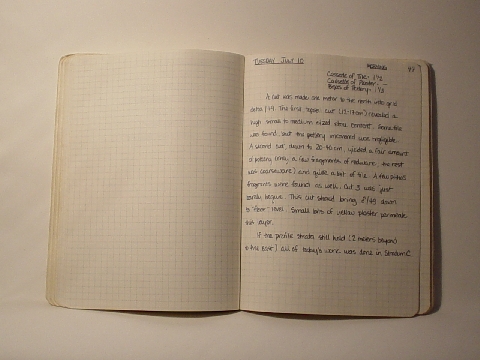 TUESDAY JULY 10
47
Cassette of Tile: 1 1/2
Cassette of Plaster: —
Boxes of Pottery: 1 1/3
A cut was made one meter to the north into grid
The first "space" cut (12-17cm) revealed a
high small to medium sized stone content. Some tile
was found, but the pottery uncovered was negligible.
A second cut, down to 20-40 cm, yielded a fair amount
of pottery (only a few fragments of fineware, the rest
was coarseware) and quite a bit of tile. A few
fragments were found as well. Cut 3 was just
barely begun. This cut should bring f 49 down
to "floor" level. Small bits of yellow plaster permeate
this layer.
If the profile strata still hold (2 meters beyond)
to the East) all of today's work was done in Stratum C